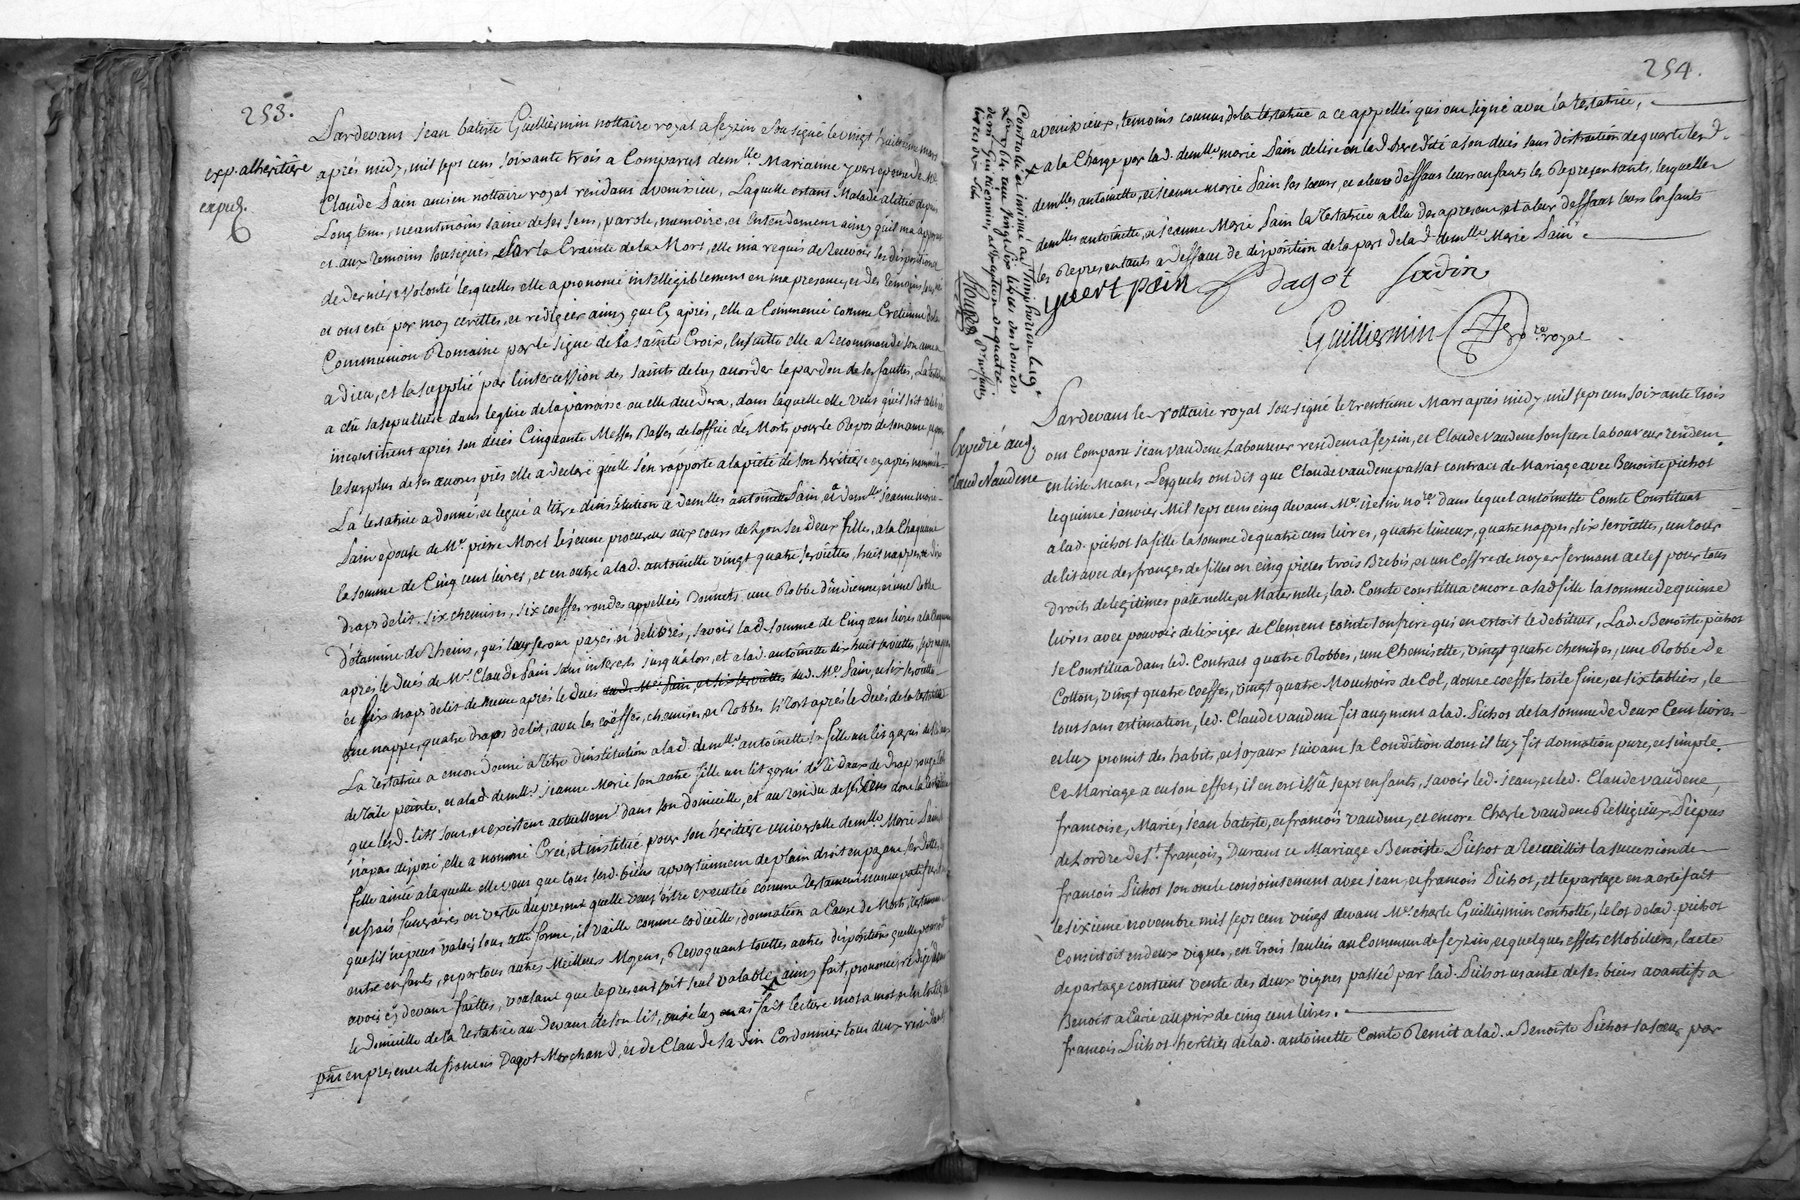 253.
exp. alheritiere
expié.
Pardevant jean batiste Guilliermin nottaire royal a feyzin sousigné le vingt huitieme mars
aprés midy, mil sept cent soixante trois a Comparut dem.lle Marianne yvert epouse de M.e
Claude Pain ancien nottaire royal residant a venissieu, Laquelle estant Malade alitée depuis
Long tems, neantmoins saine de ses sens, parole, memoire, et Entendement ainsy quil m'a apparu
et aux temoins sousignés, et sur la Crainte de la Mort, elle m'a requis de recevoir ses dispositions
de derniere volonté lesquelles elle a prononcé intelligiblement en ma presence, et des temoins sousig.
et ont esté par moy ecrittes, et redigées ainsy que Cy aprés, elle a Commencé comme Cretienne de la
Communion Romaine par le signe de la sainte Croix, Ensuitte elle a Recommandé son ame
a dieu, et la supplié par l'intercession des saints de luy accorder le pardon de ses fauttes, La testatrice
a élû sa sepulture dans l'eglise de la parroisse ou elle decedera, dans laquelle elle veut qu'il soit celebré
incontinent aprés son decés Cinquante Messes Basses de l'office des Morts pour le Repos de son ame, pour
le surplus de ses œuvres pies elle a declaré quelle s'en rapporte a la pieté de son heritiere cy aprés nommée.
La testatrice a donné, et legué a titre d'institution a dem.lles antoinette Pain, et a dem.lle jeanne marie
Pain epouse de M.e pierre Morel le jeune procureur aux cours de Lyon ses deux filles, a la Chaquune
la somme de Cinq cent livres, et en outre a lad. antoinette vingt quatre serviettes, huit nappes, et dix
draps de lit, six chemises, six coeffes rondes appellées Bonnets, une Robbe d'indienne, et une Robbe
d'étamine de Rheims, qui leur seront payés et délivrés, savoir lad. somme de Cinq cent livres a la Chaquune
aprés le decés de M.e Claude Pain sans interests jusqu'alors, et a lad. antoinette dix huit serviettes, sept nappes
et six draps de lit de meme aprés le decés dud. M.e Pain, et six serviettes dud. M.e Pain, et six serviettes
une nappe, quatre draps de lit, avec les coeffes, chemises, et Robbes si tost aprés le decés de la testatrice
La Testatrice a encor donné a titre d'institution a lad. dem.lle antoinette sa fille un lit garni de rideaux
de toile peinte, et a lad. dem.lle jeanne Marie son autre fille un lit garni de rideaux de drap rouge tels
que lesd. lits sont, et existent actuellement dans son domicille, et au residu de ses biens dont la testatrice
n'a pas disposé, elle a nommé Créé, et institué pour son heritiere universelle dem.lle Marie Pain sa
fille ainée a laquelle elle veut que tous sesd. biens appartiennent de plain droit en payant ses dettes,
et frais funeraires, en vertu du present quelle veut être executée comme testament nuncupatif, et
que s'il ne peut valoir sous cette forme, il vaille comme codicille, donnation a Cause de Mort, testament
entre enfants, et par tous autres Meilleurs Moyens, Revoquant touttes autres dispositions quelle pourroit
avoir cy devant faittes, voulant que le present soit seul valable, ainsy fait, prononcé, redigé dans
le domicille de la Testatrice au devant de son lit, ou je luy en ai fait lecture mot a mot
en presence de francois Dagot Marchand, et de Claude Sadin Cordonnier tous deux residants
254.
a venissieux, temoins connus de la testatrice a ce appellés qui ont signé avec la testatrice,
a la Charge par lad. demlle marie Pain d'elire en lad. heredité a son decés sans distraction de quarte lesd.
demlles antoinette, et jeanne marie Pain ses sœurs, et a leur deffaut leurs enfants les Representants, lesquelles
demlles antoinette, et jeanne Marie Pain la Testatrice a élu des apresent, et a leur deffaut leurs Enfants
les Representants a deffaut de disposition de la part de lad. demlle Marie Pain.
yvert pain Dagot Sadin
Guilliermin n.re royal
Controllé et insinué a S.t Simphorien le 19.e
Expedié aud.
Claude Vaudene
Pardevant le Nottaire royal sousigné le trentieme Mars aprés midy, mil sept cent soixante trois
ont Comparu jean vaudene Laboureur residant a feyzin, et Claude vaudene son frere laboureur residant
en lisle mean, Lesquels ont dit que Claude vaudene passat contract de Mariage avec Benoiste pichot
le quinze janvier Mil sept cent cinq devant M.e no.re dans lequel antoinette Comte Constituat
a lad. pichot sa fille la somme de quatre cent livres, quatre linceux, quatre nappes, six serviettes, un tour
de lit avec des franges de filles en cinq pieces trois Brebis, et un Coffre de noyer fermant a clef pour tous
droits de legitimes paternelle, et Maternelle, lad. Comte constitua encore a sad. fille la somme de quinze
livres avec pouvoir de l'exiger de Clement comte son frere qui en estoit le debiteur, Lad. Benoiste pichot
se Constitua dans led. Contract quatre Robbes, une Chemisette, vingt quatre chemises, une Robbe de
Cotton, vingt quatre coeffes, vingt quatre Mouchoirs de Col, douze coeffes toile fine, et six tabliers, le
tout sans estimation, led. Claude vaudene fit augment a lad. Pichot de la somme de Deux Cent livres
et luy promit des habits, et joyaux suivant sa Condition dont il luy fit donnation pure, et simple.
Ce Mariage a eu son effet, il en est issû sept enfants, savoir led. jean, et led. Claude vaudene,
francoise, Marie, jean batiste, et francois vaudene, et encore Charle vaudene Religieux Picpus
de Lordre de S.t francois, Durant ce Mariage Benoiste Pichot a Recueillit la succession de
francois Pichot son oncle conjointement avec jean, et francois Pichot, et le partage en a esté fait
le sixieme novembre mil sept cent vingt devant M.e charle Guilliermin controllé, le lot de lad. pichot
Consistoit en deux vignes, en trois saulées au Commun de feyzin, et quelques effets Mobiliers, l'acte
de partage contient vente des deux vignes passée par lad. Pichot usante de ses biens avantifs a
Benoist au prix de cinq cent livres.
francois Pichot heritier de lad. antoinette Comte Remit a lad. Benoiste Pichot sa sœur par